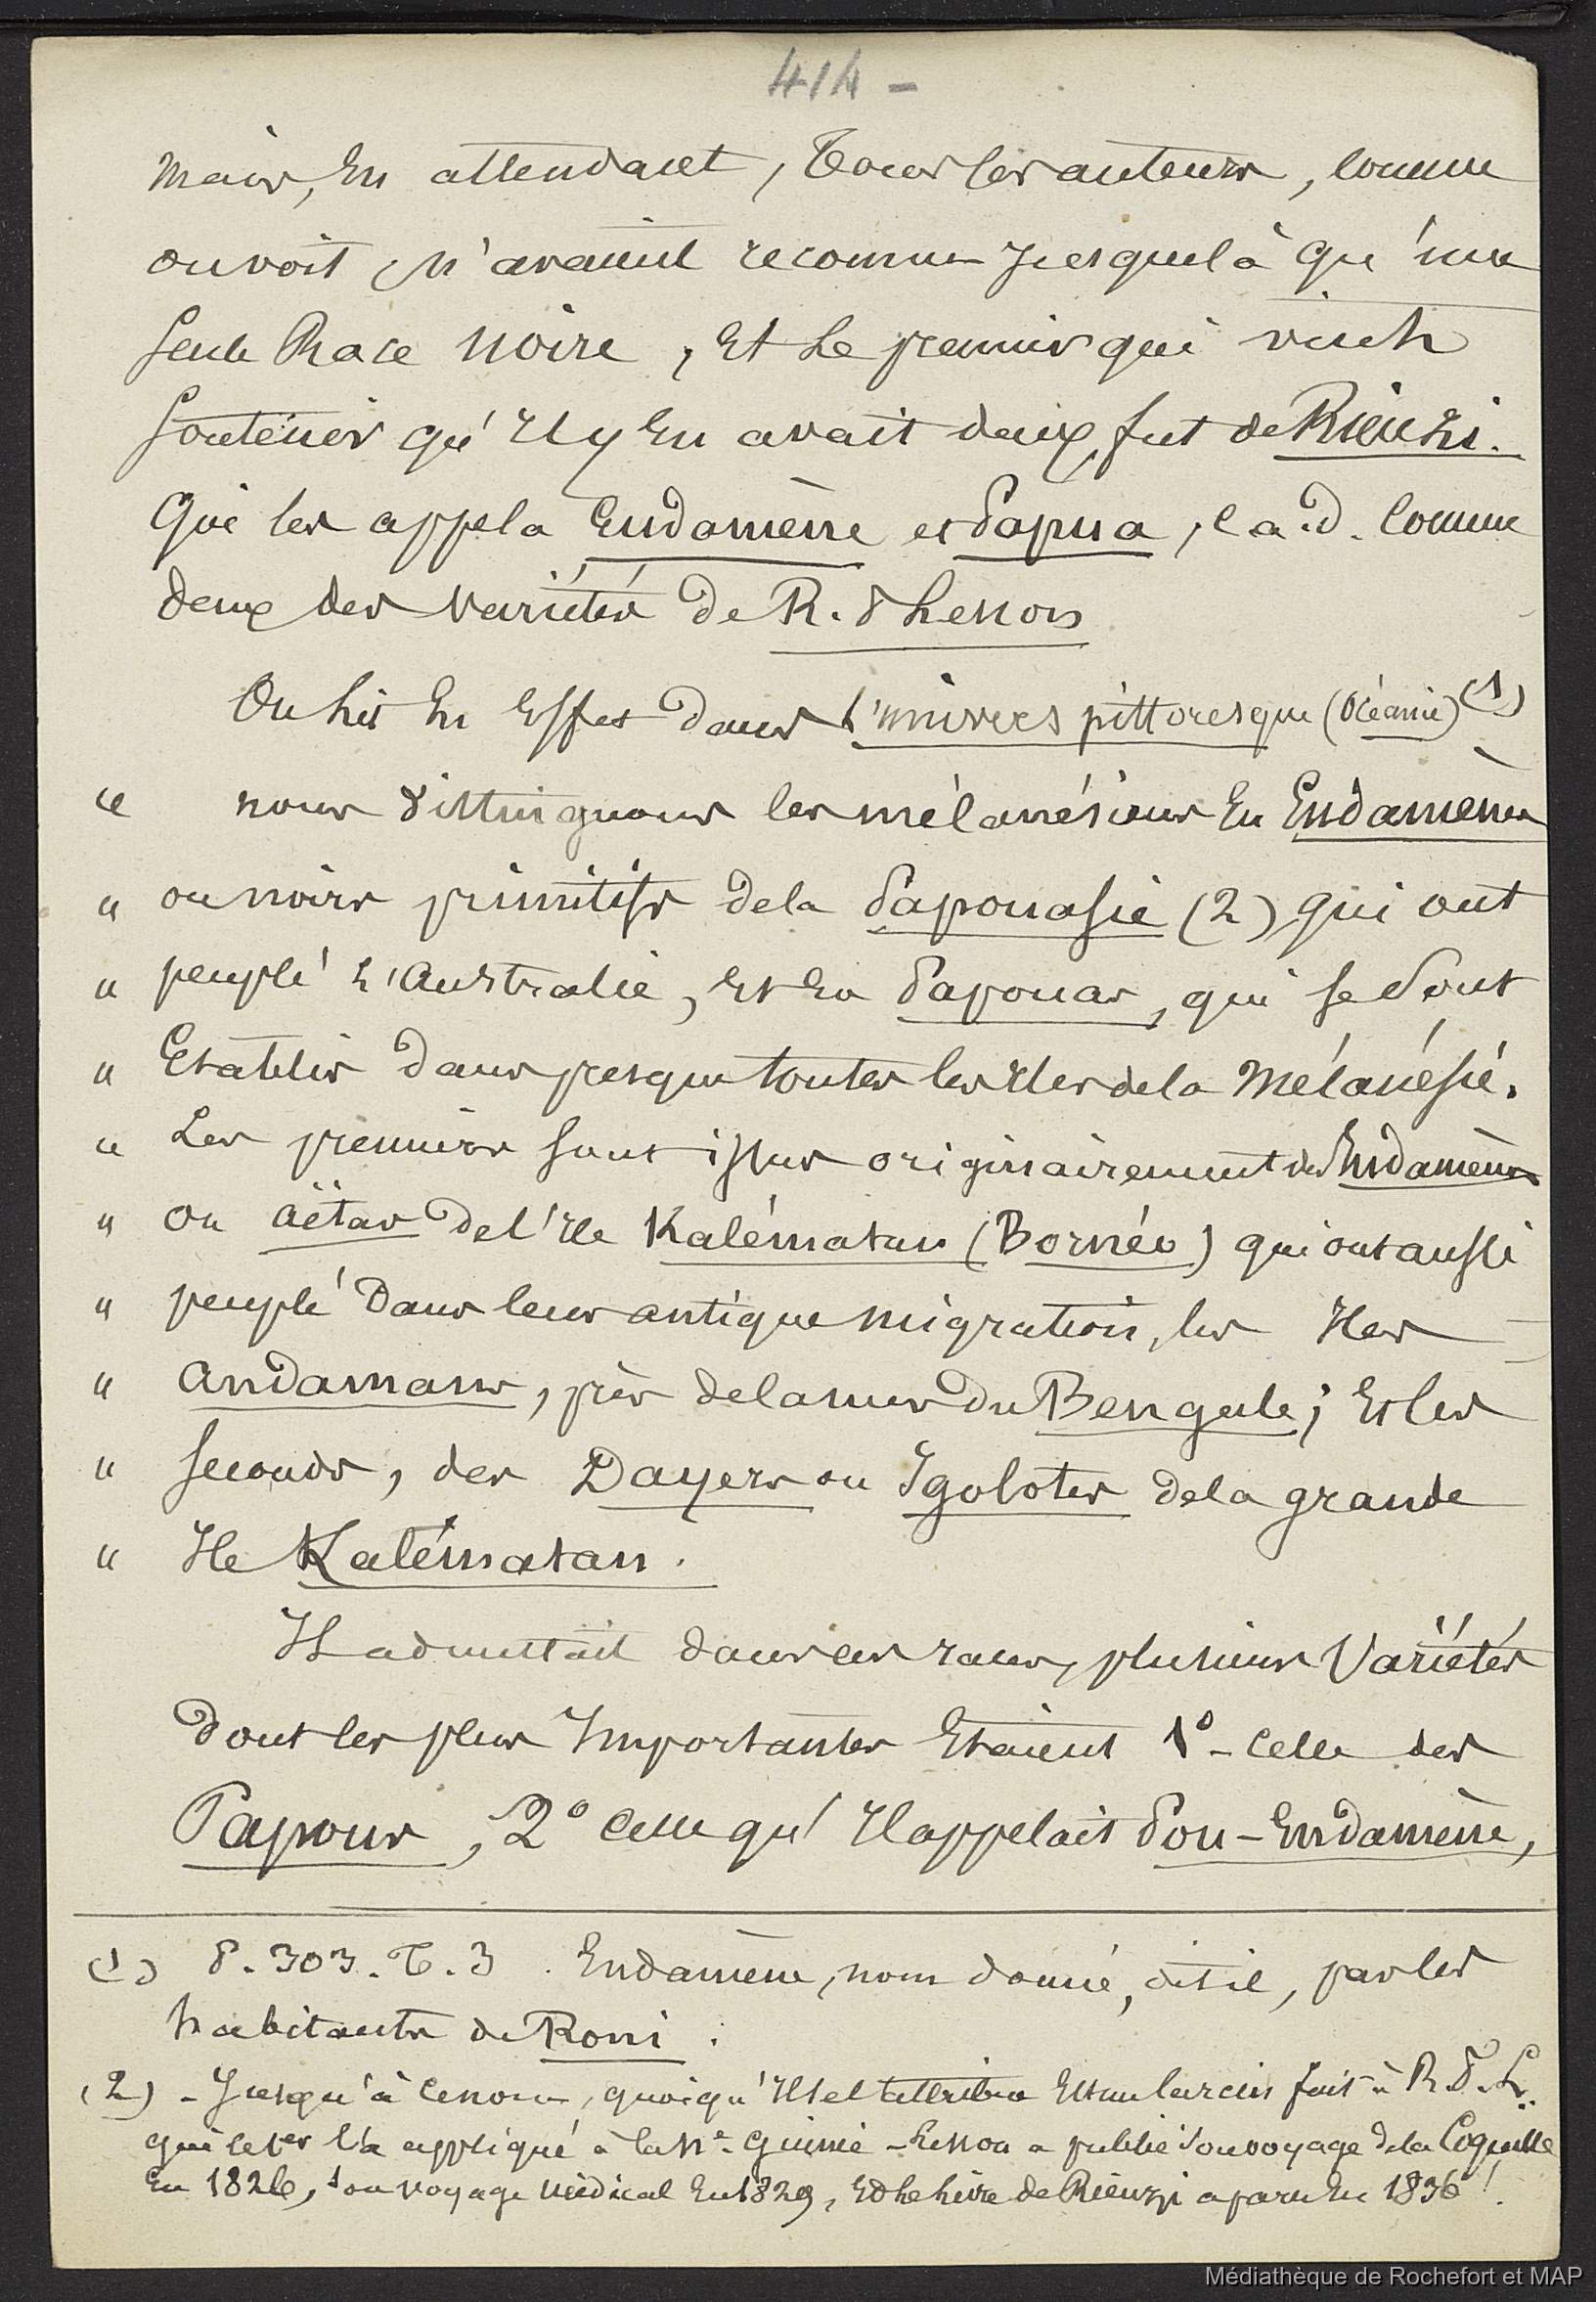 414 -
mais, En attendant, Tous les auteurs, comme
on voit, n'avaient reconnu jusques là qu'une
seule Race noire, Et le premier qui vint
soutenir qu'Il y En avait deux, fut de Rienzi.
qui les appela Endamène et Papua, c a.d. comme
deux des variétés de R. P Lesson
On lit En Effet dans l'univers pittoresque (Océanie) (1)
" nous distinguons les mélanésiens En Endamènes
" ou noirs primitifs de la Papouasie (2) qui ont
" peuplé l'Australie, Et En Papouas, qui se sont
" Etablis dans presque toutes les Iles de la Mélanésie.
" Les premiers sont issus originairement des Endamènes
" ou aëtas de l'Ile Kalématan (Bornéo) qui ont aussi
" peuplé dans leur antique migration, les Iles
" andamans, près de la mer du Bengale; Et les
" seconds, des Dayers ou Igolotes de la grande
" Ile Kalématan.
Il admettait dans ces races, plusieurs Variétés
dont les plus Importantes Etaient 1° - celle des
Papous, 2° celle qu'Il appelait Pou-Endamène,
(1) P. 303. T. 3. Endamène, nom donné, dit il, par les
habitants de Roni.
(2) - Jusqu'à ce nom, quoiqu'Il se l'attribue Est un larcin fait à R. P. L.
qui le 1er l'a appliqué à la Nle Guinée - Lesson a publié son voyage de la Coquille
En 1826, son voyage médical En 1829, Et le livre de Rienzi a paru En 1836!
Médiathèque de Rochefort et MAP